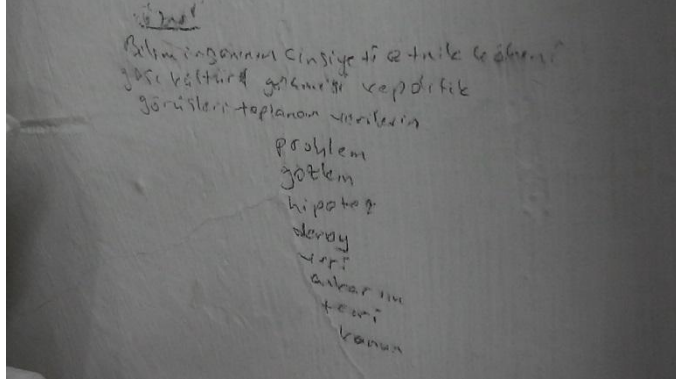 öznel
Bilim insanının cinsiyeti etnik kökeni
yaşı kültürel geçmişi ve politik
görüşleri toplanan verilerin
problem
gözlem
hipotez
deney
veri
teori
kanun